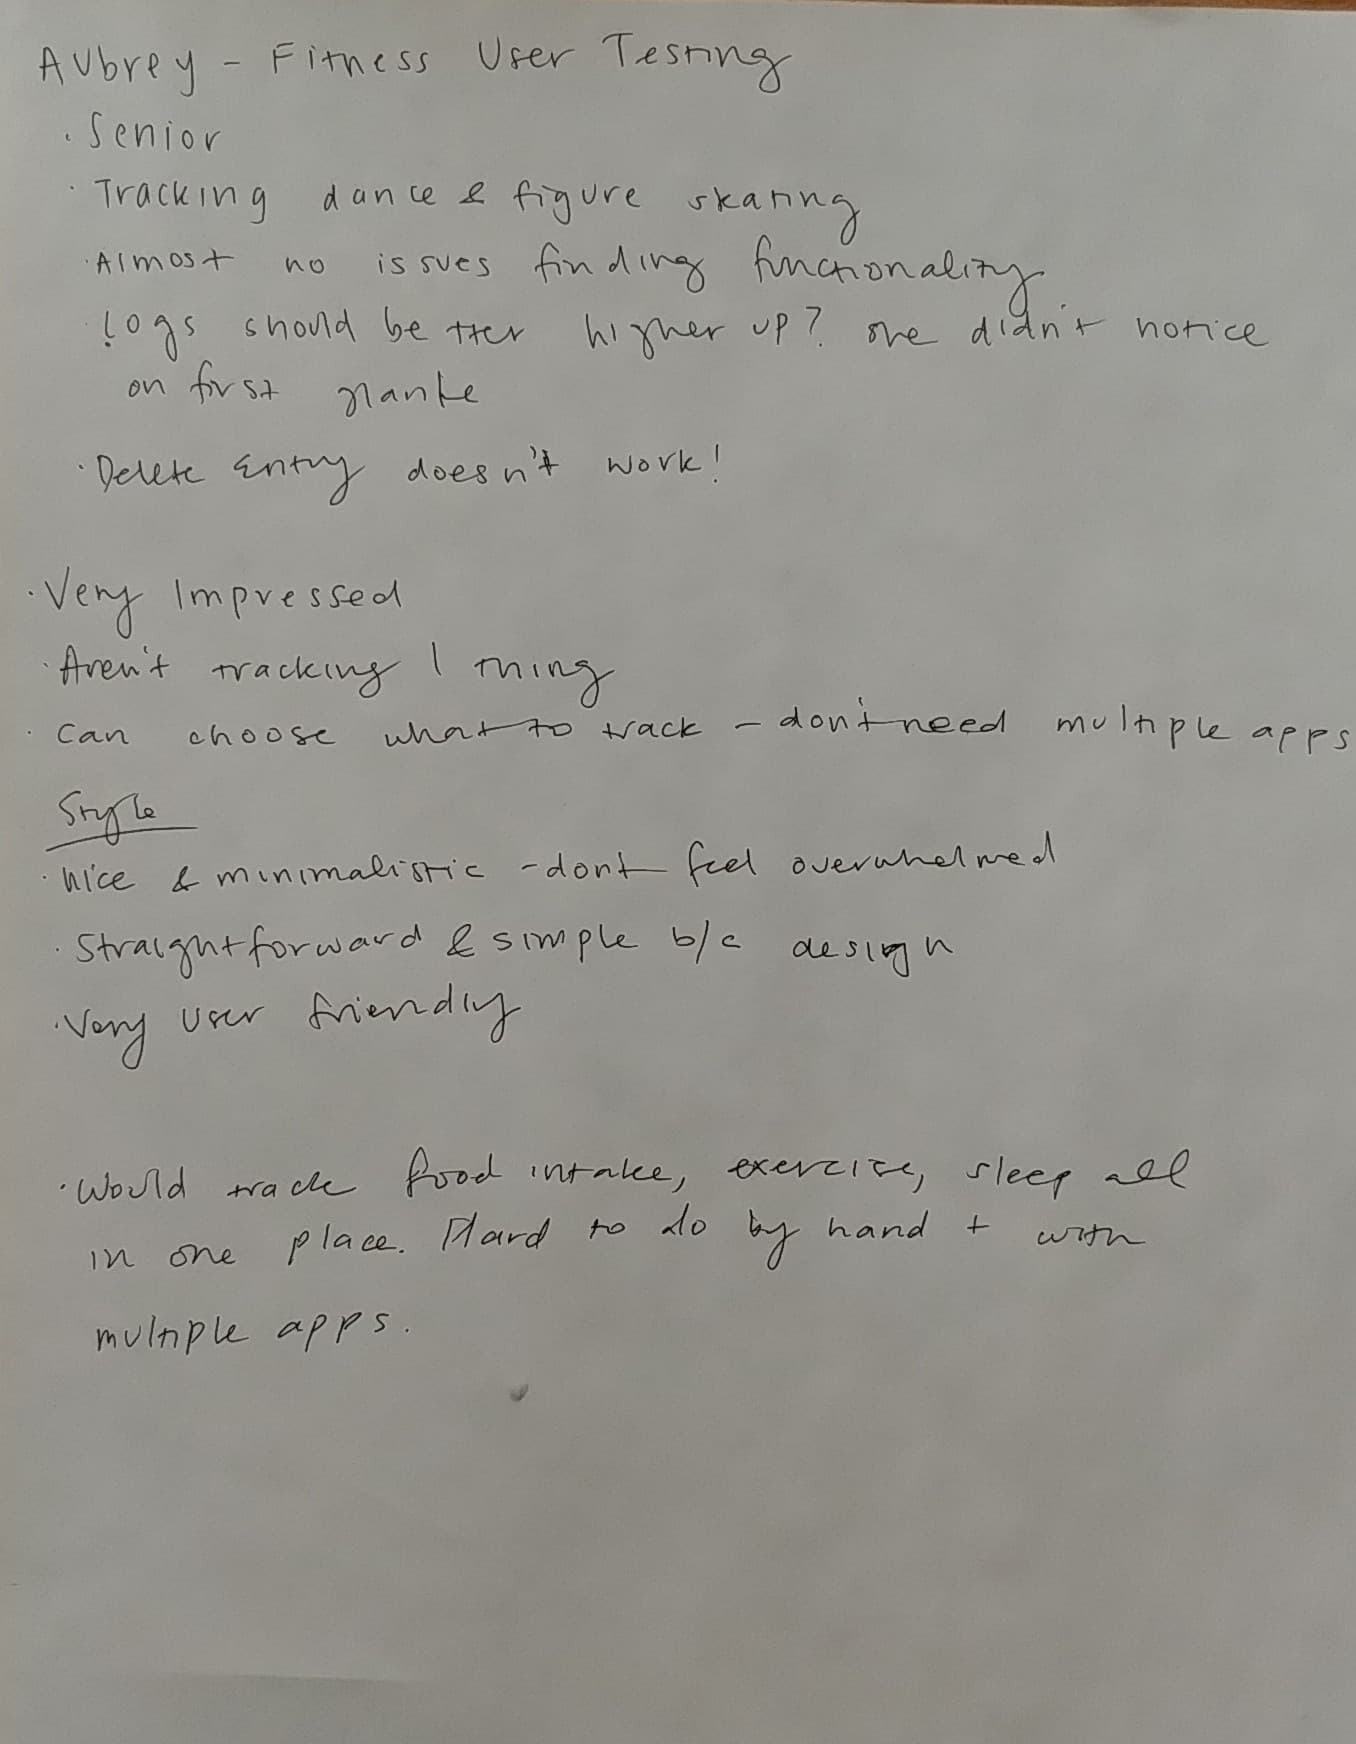 Aubrey - Fitness User Testing
· Senior
· Tracking dance & figure skating
· Almost no issues finding functionality
· Logs should be tter higher up? she didn't notice
on first glanke
· Delete Entry doesn't work!
· Very Impressed
· Aren't tracking 1 thing
· Can choose what to track - don't need multiple apps
Style
· Nice & minimalistic - dont feel overwhelmed
· Straightforward & simple b/c design
· Very User friendly
· Would track food intake, exercise, sleep all
in one place. Hard to do by hand + with
multiple apps.